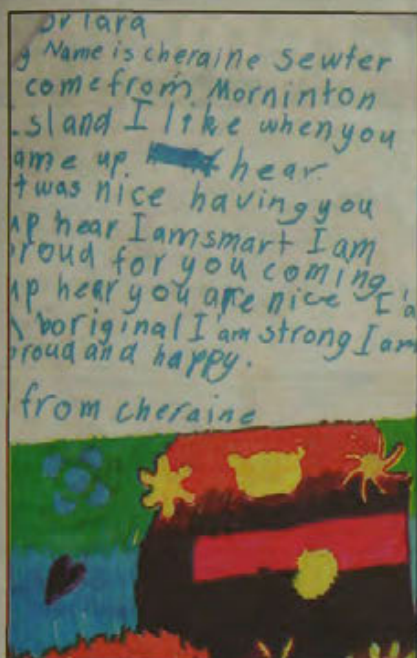 or lara
y Name is cheraine sewter
come from Morninton
sland I like when you
ame up hear
t was nice having you
up hear I am smart I am
roud for you coming
up hear you are nice I'a
Aboriginal I'am strong I am
proud and happy.
from cheraine